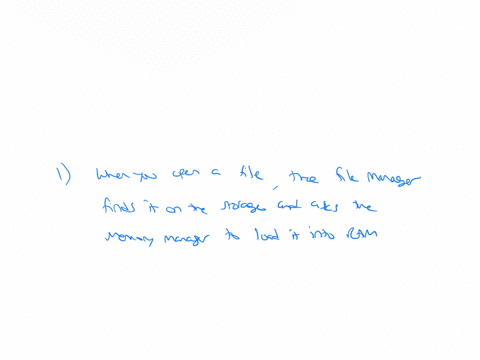 1) When you open a file, the file manager
finds it on the storage and asks the
memory manager to load it into RAM